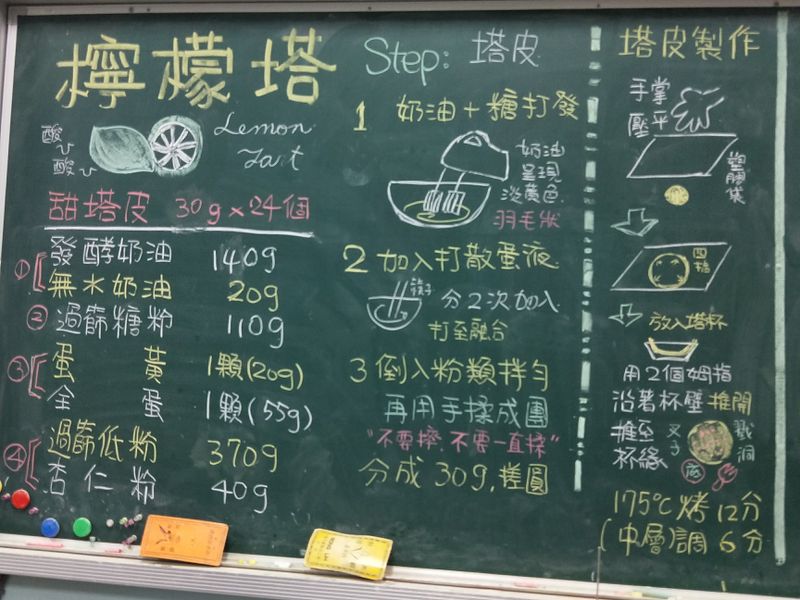 檸檬塔
酸
酸
Lemon
Tart
甜塔皮 30g×24個
① 發酵奶油 140g
無水奶油 20g
② 過篩糖粉 110g
③ 蛋黃 1顆(20g)
全蛋 1顆(55g)
④ 過篩低粉 370g
杏仁粉 40g
Step: 塔皮
1 奶油+糖打發
奶油
呈現
淡黃色
羽毛狀
2 加入打散蛋液
筷子
分2次加入
打至融合
3 倒入粉類拌勻
再用手揉成團
"不要擠.不要一直揉"
分成30g.搓圓
塔皮製作
手掌
壓平
塑膠袋
放入塔杯
用2個姆指
沿著杯壁推開
推至
杯緣
叉子
戳洞
175℃烤12分
(中層)調6分